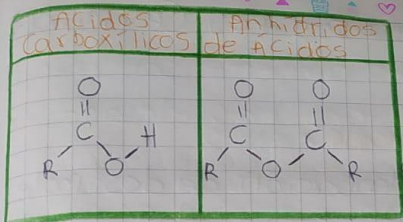 Ácidos
Carboxílicos
Anhídridos
de Ácidos
O
C
R
O
H
O
O
C
C
R
O
R